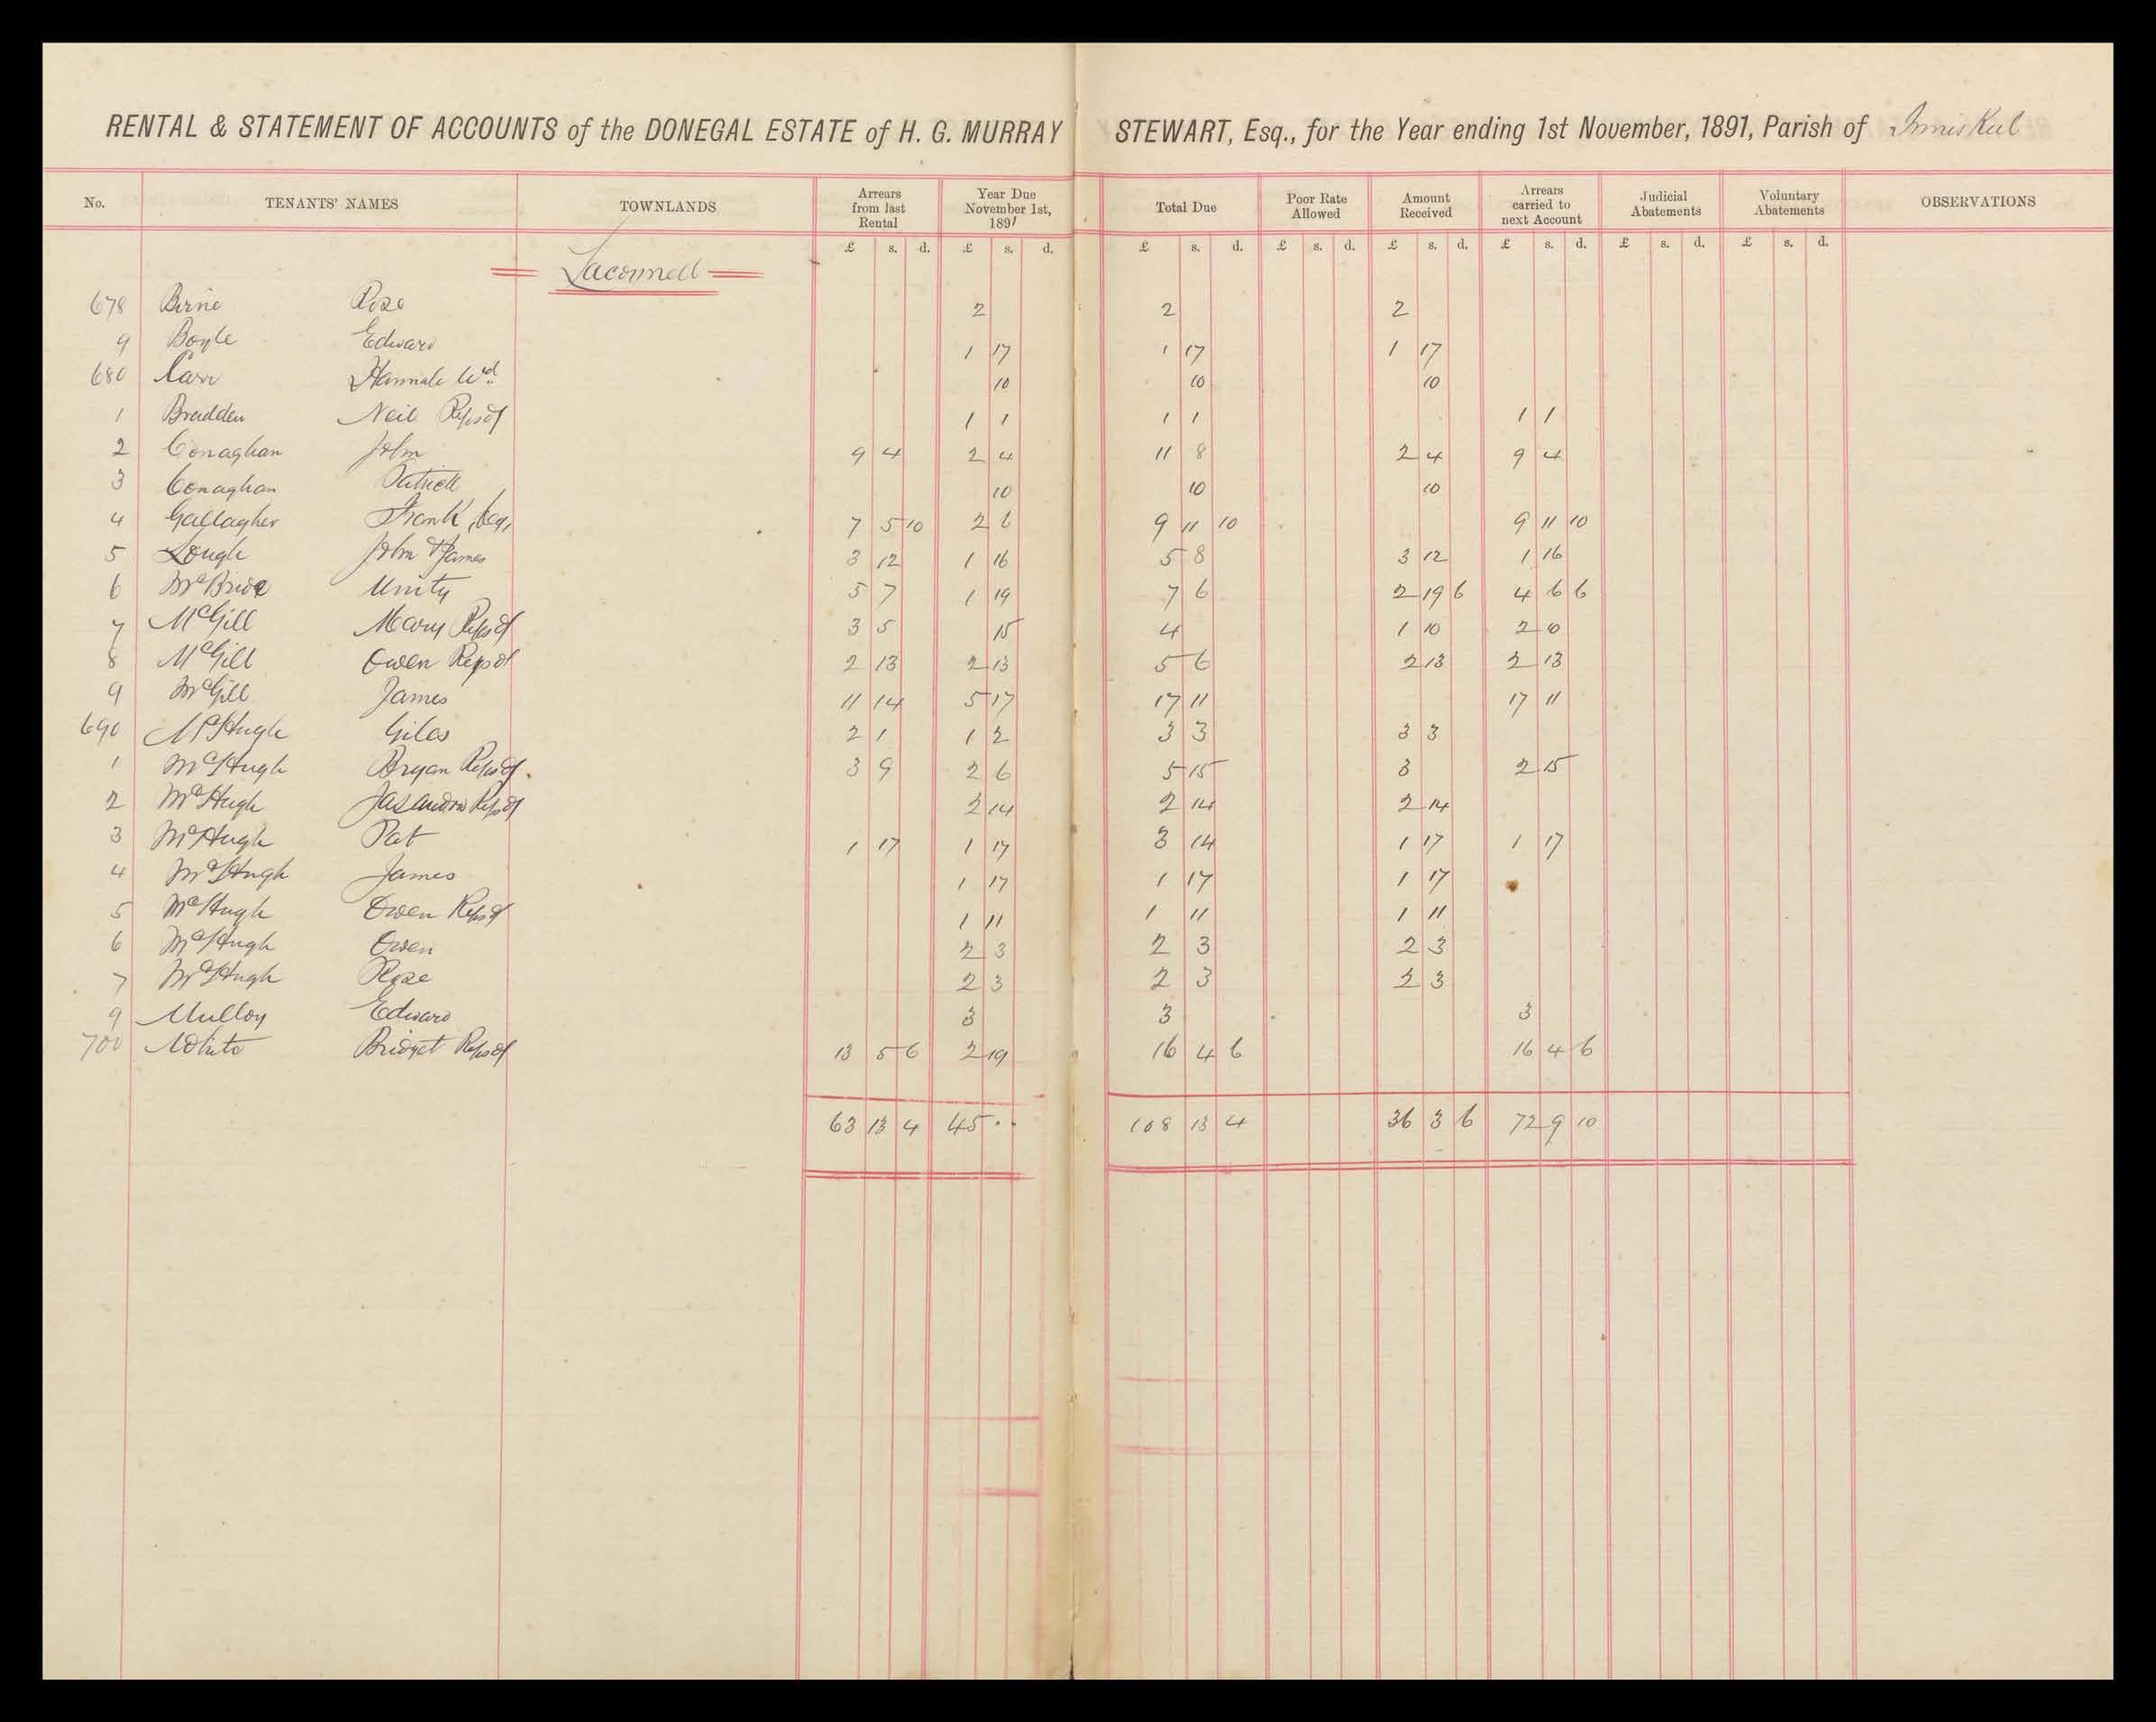 RENTAL & STATEMENT OF ACCOUNTS of the DONEGAL ESTATE of H. G. MURRAY STEWART, Esq., for the Year ending 1st November, 1891, Parish of Inniskeel
No. TENANTS' NAMES TOWNLANDS Arrears from last Rental Year Due November 1st, 1891 Total Due Poor Rate Allowed Amount Received Arrears carried to next Account Judicial Abatements Voluntary Abatements OBSERVATIONS
£ s. d. £ s. d. £ s. d. £ s. d. £ s. d. £ s. d. £ s. d. £ s. d.
Laconnell
678 Birne Rose 2 2 2
9 Boyle Edward 1 17 1 17 1 17
680 Carr Hannah Wd 10 10 10
1 Bradden Neil Reps of 1 1 1 1 1 1
2 Conaghan John 9 4 2 4 11 8 2 4 9 4
3 Conaghan Patrick 10 10 10
4 Gallagher Frank 7 5 10 2 6 9 11 10 9 11 10
5 Lough John & James 3 12 1 16 5 8 3 12 1 16
6 McBride Unity 5 7 1 19 7 6 2 19 6 4 6 6
7 McGill Mary Reps of 3 5 15 4 1 10 2 10
8 McGill Owen Reps of 2 13 2 13 5 6 2 13 2 13
9 McGill James 11 14 5 17 17 11 17 11
690 McHugh Giles 2 1 1 2 3 3 3 3
1 McHugh Bryan Reps of 3 9 2 6 5 15 3 2 15
2 McHugh Reps of 2 14 2 14 2 14
3 McHugh Pat 1 17 1 17 3 14 1 17 1 17
4 McHugh James 1 17 1 17 1 17
5 McHugh Owen Reps of 1 11 1 11 1 11
6 McHugh Owen 2 3 2 3 2 3
7 McHugh Rose 2 3 2 3 2 3
9 Mulloy Edward 3 3 3
700 White Bridget Reps of 13 5 6 2 19 16 4 6 16 4 6
63 13 4 45 . . 108 13 4 36 3 6 72 9 10